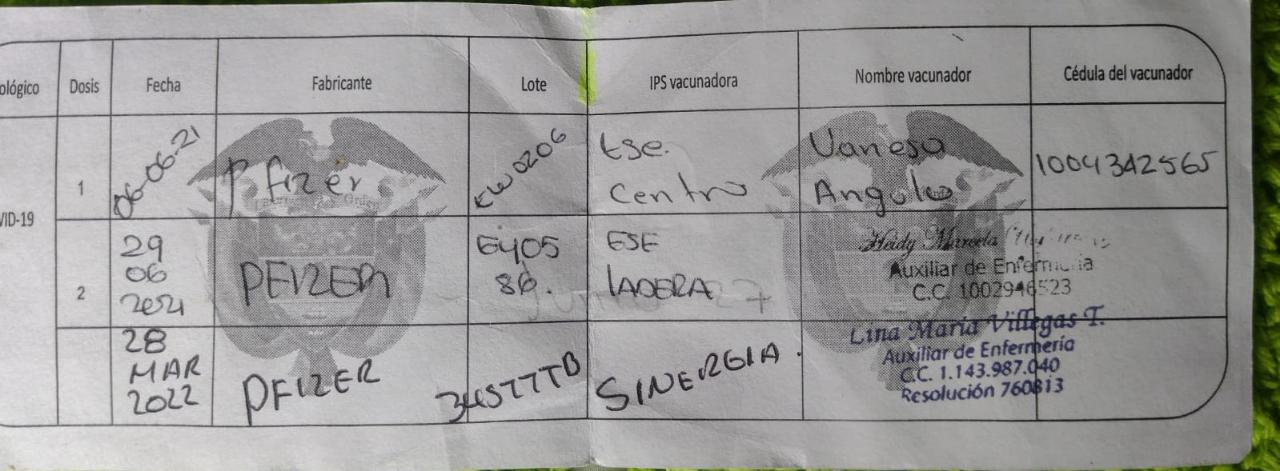 ológico Dosis Fecha Fabricante Lote IPS vacunadora Nombre vacunador Cédula del vacunador
VID-19
1 06-06-21 Pfizer EW0206 Ese. Centro Vanesa Angulo 1004342565
2 29 06 2021 PFIZER EY05 86. ESE LADERA
Heidy Marcela
Auxiliar de Enfermería
C.C. 1002946523
28 MAR 2022 PFIZER SINERGIA.
Lina María Villegas T.
Auxiliar de Enfermería
C.C. 1.143.987.040
Resolución 760813